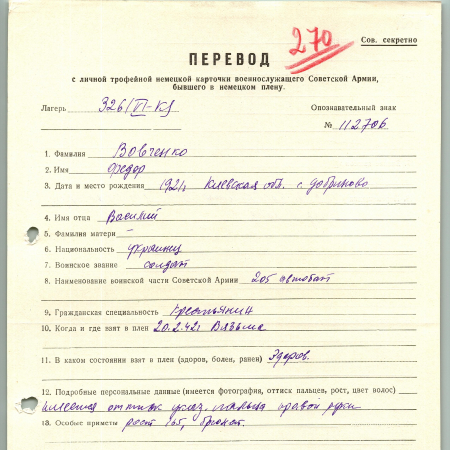 270
Сов. секретно
ПЕРЕВОД
с личной трофейной немецкой карточки военнослужащего Советской Армии,
бывшего в немецком плену.
Лагерь 326/VI-К
Опознавательный знак
№ 112706
1. Фамилия Вовченко
2. Имя Федор
3. Дата и место рождения 1921, Киевская обл. с. Добриново
4. Имя отца Василий
5. Фамилия матери –
6. Национальность украинец
7. Воинское звание солдат
8. Наименование воинской части Советской Армии 205 автобат
9. Гражданская специальность крестьянин
10. Когда и где взят в плен 20.2.42г Вязьма
11. В каком состоянии взят в плен (здоров, болен, ранен) Здоров.
12. Подробные персональные данные (имеется фотография, оттиск пальцев, рост, цвет волос)
имеется оттиск указ. пальца правой руки
13. Особые приметы рост 165, брюнет.